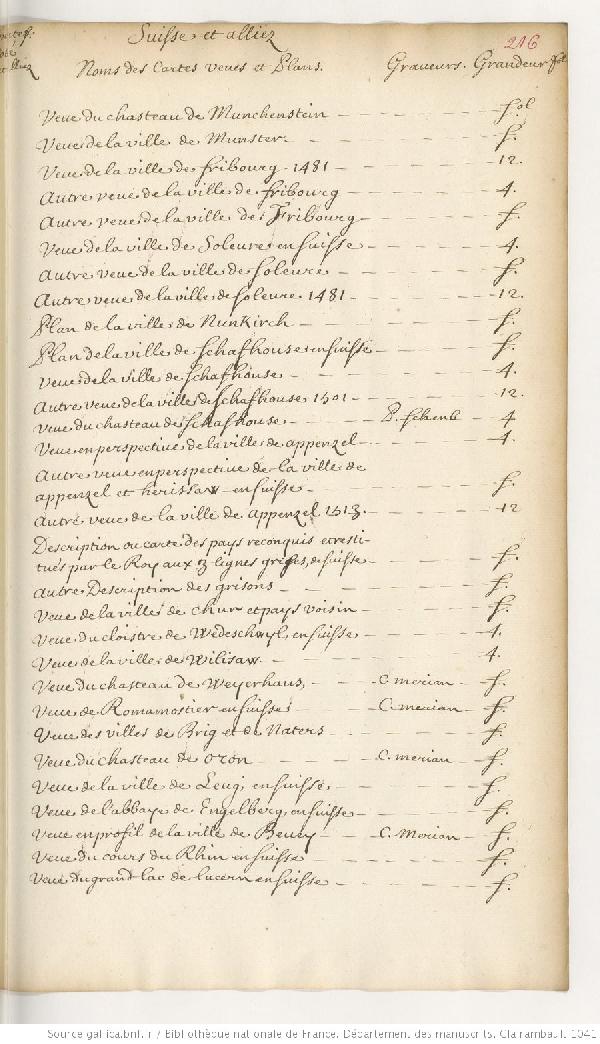 Suisse et alliez
216
Noms des Cartes veues et Plans. Graveurs. Grandeur fol
Veue du chasteau de Munchenstein f.ol
Veue de la ville de Munster. f.
Veue de la ville de fribourg 1481 12.
Autre veue de la ville de fribourg 4.
Autre veue de la ville de Fribourg f.
Veue de la ville de Soleure en suisse 4.
Autre veue de la ville de soleure f.
Autre veue de la ville de soleure 1481 12.
Plan de la ville de NunKirch f.
Plan de la ville de schafhouse en suisse f.
veue de la ville de schafhouse 4.
Autre veue de la ville de schafhouse 1501 12.
veue du chasteau de schafhouse P. schenb 4
Veue en perspective de la ville de appenzel 4.
Autre veue en perspective de la ville de
appenzel et herissaw en suisse f.
Autre veue de la ville de appenzel 1513. 12
Description ou carte des pays reconquis et resti-
tués par le Roy aux 3 lignes grises, de suisse f.
Autre Description des grisons f.
Veue de la ville de Chur et pays voisin f.
Veue du cloistre de Wedeschwyl, en suisse 4.
Veue de la ville de Wilisaw 4.
Veue du chasteau de Weyerhaus, C. merian f.
Veue de Romamostier en suisse C. merian f.
Veue des villes de Brig et de Naters f.
Veue du chasteau de oron C. merian f.
Veue de la ville de Leug, en suisse f.
Veue de l'abbaye de Engelberg, en suisse f.
Veue en profil de la ville de Bevey C. Merian f.
Veue du cours du Rhin en suisse f.
Veue du grand lac de lucern en suisse f.
Source gallica.bnf.fr / Bibliothèque nationale de France. Département des manuscrits. Clairambault 1041